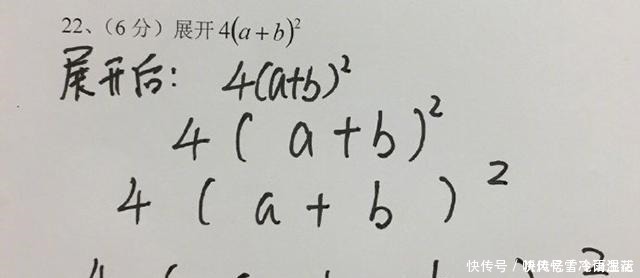 22、（6分）展开 4(a+b)²
展开后： 4(a+b)²
4 ( a + b )²
4 ( a + b ) ²
快传号 /